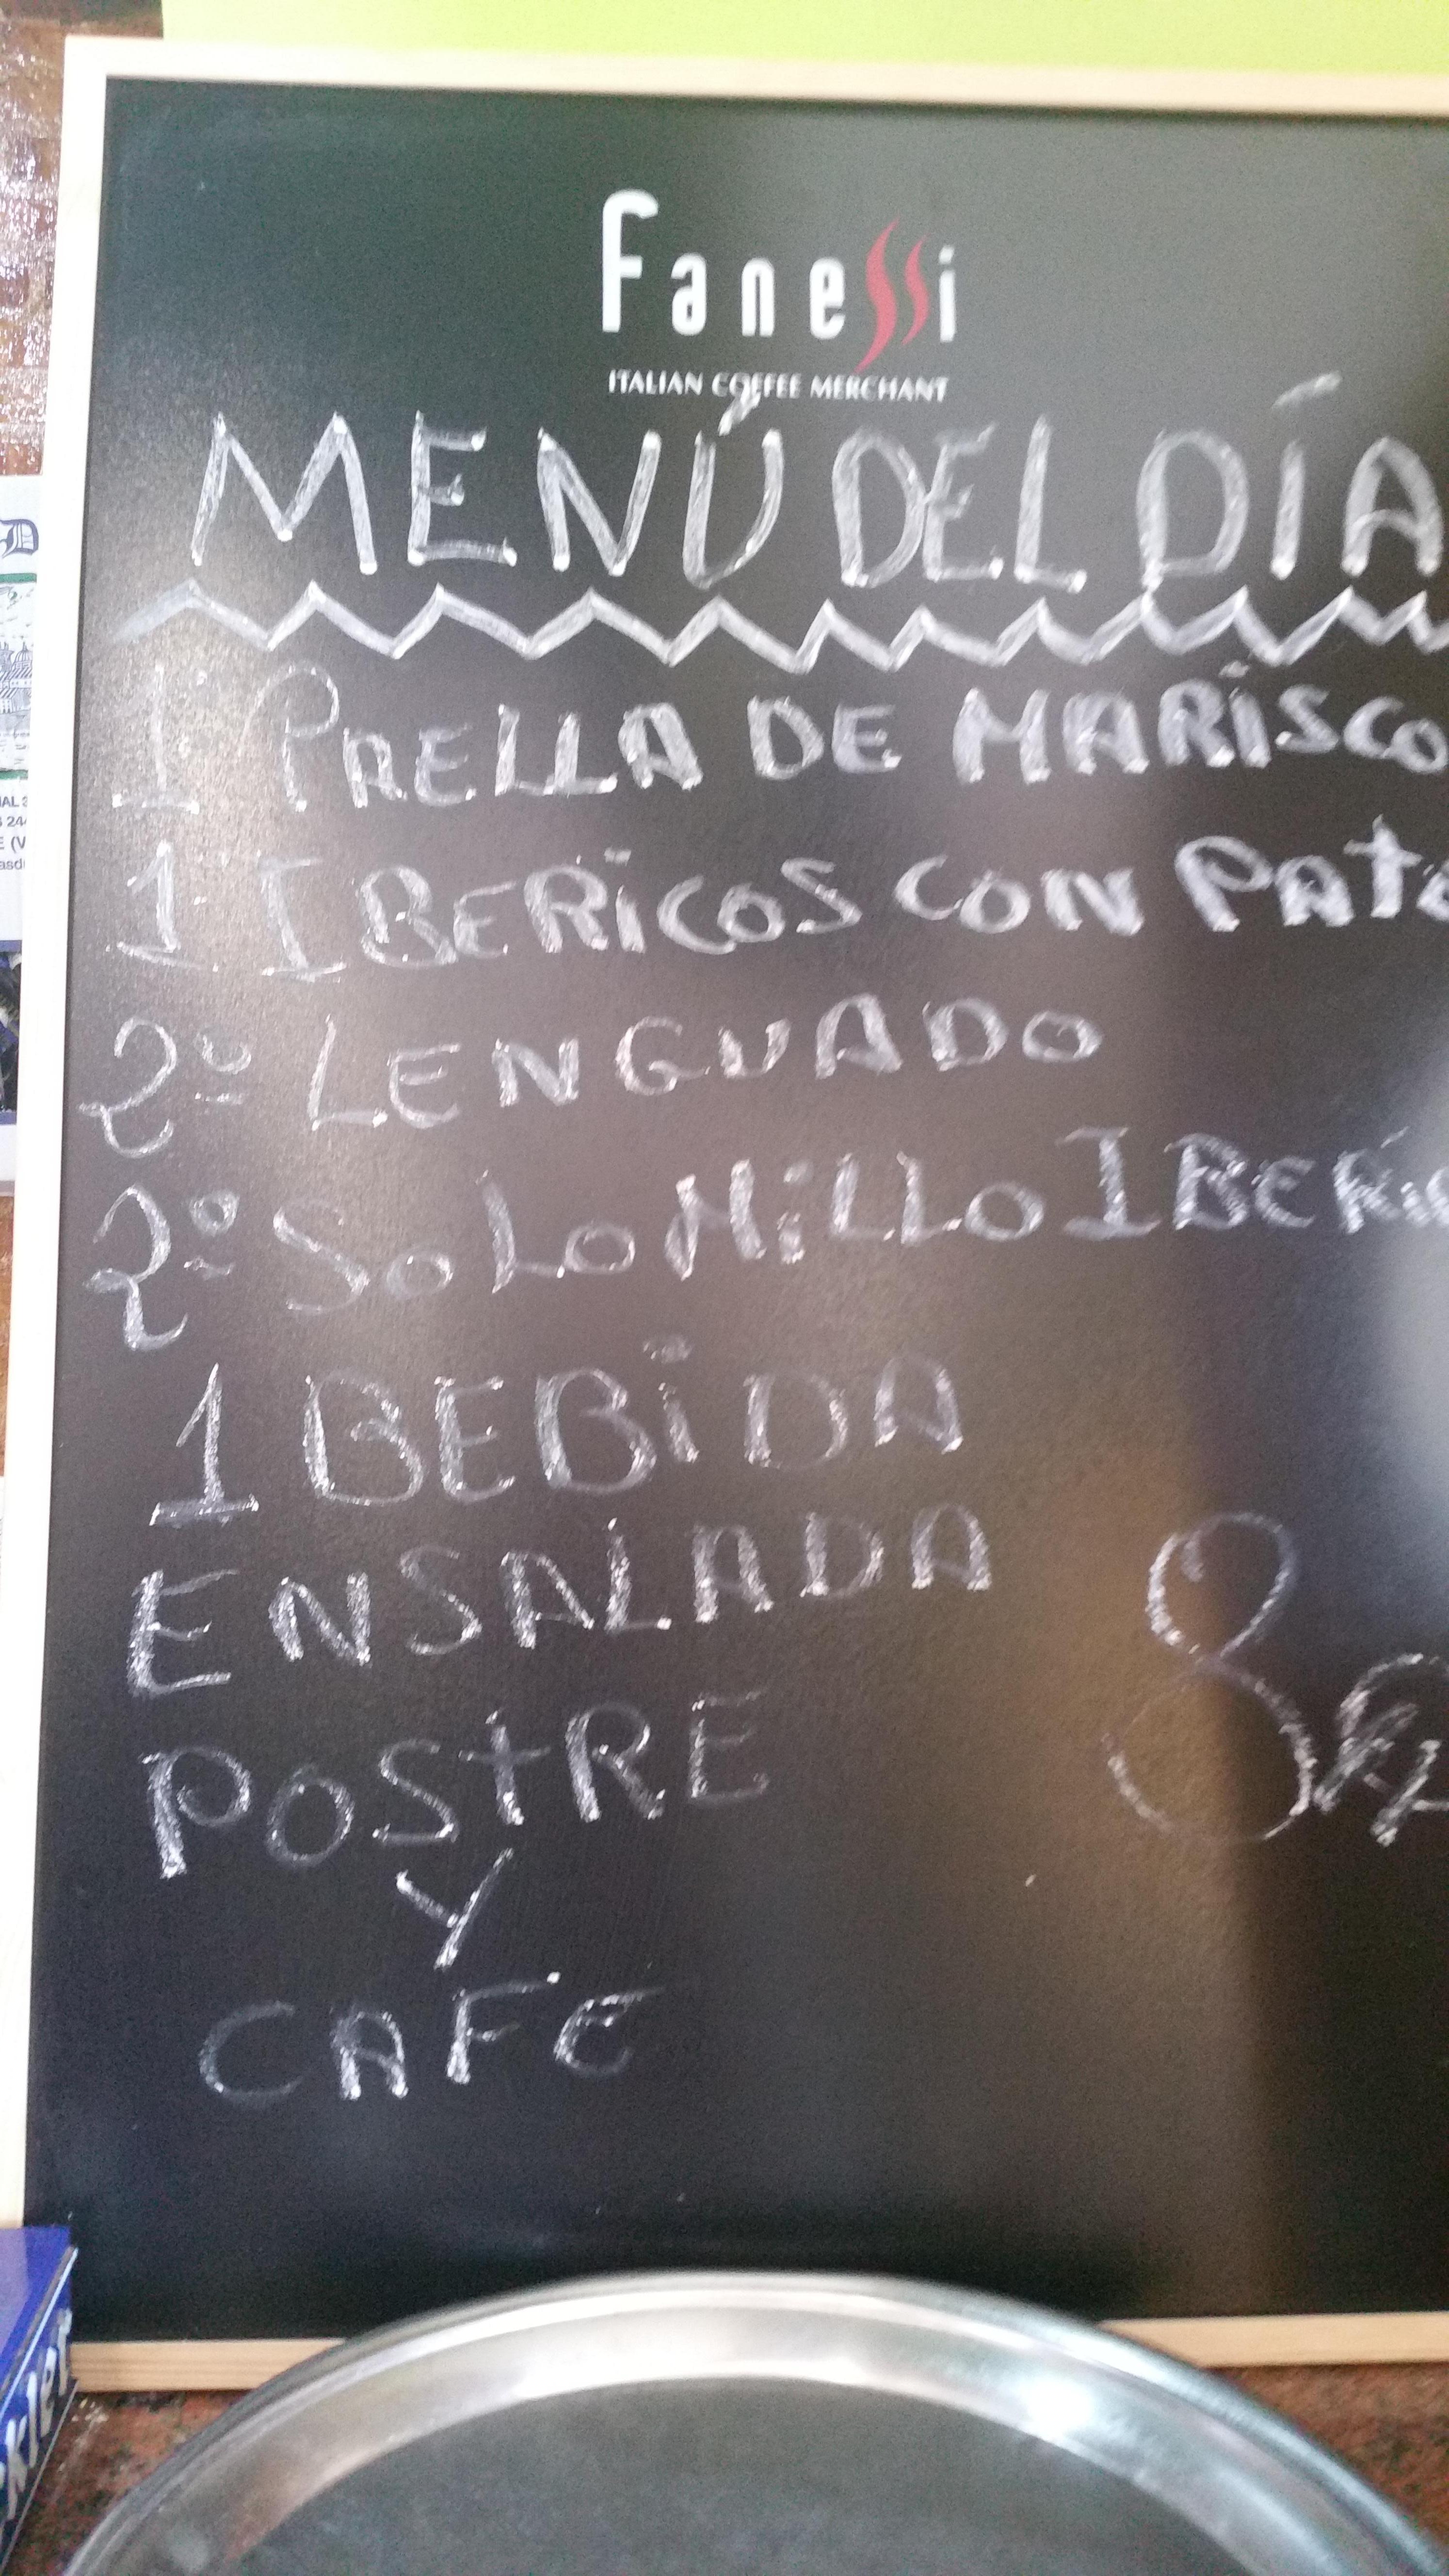 Fanessi
ITALIAN COFFEE MERCHANT
MENÚ DEL DÍA
1 PAELLA DE MARISCO
1 IBERICOS CON PATE
2º LENGUADO
2º SOLOMILLO IBERIC
1 BEBIDA
ENSALADA
POSTRE
Y
CAFE
8